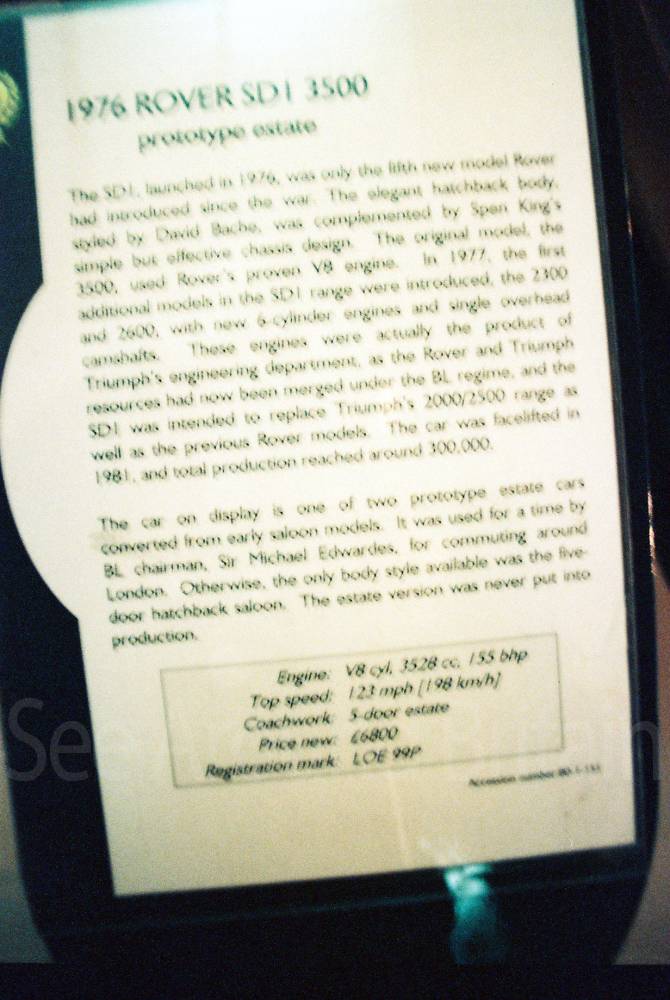 1976 ROVER SD1 3500
prototype estate
The SD1, launched in 1976, was only the fifth new model Rover
had introduced since the war. The elegant hatchback body,
styled by David Bache, was complemented by Spen King's
simple but effective chassis design. The original model, the
3500, used Rover's proven V8 engine. In 1977, the first
additional models in the SD1 range were introduced, the 2300
and 2600, with new 6-cylinder engines and single overhead
camshafts. These engines were actually the product of
Triumph's engineering department, as the Rover and Triumph
resources had now been merged under the BL regime, and the
SD1 was intended to replace Triumph's 2000/2500 range as
well as the previous Rover models. The car was facelifted in
1981, and total production reached around 300,000.
The car on display is one of two prototype estate cars
converted from early saloon models. It was used for a time by
BL chairman, Sir Michael Edwardes, for commuting around
London. Otherwise, the only body style available was the five-
door hatchback saloon. The estate version was never put into
production.
Engine: V8 cyl, 3528 cc, 155 bhp
Top speed: 123 mph [198 km/h]
Coachwork: 5-door estate
Price new: £6800
Registration mark: LOE 99P
Accession number